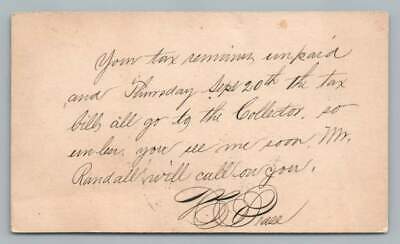 Your tax remains unpaid
and Thursday Sept 20th the tax
bills all go to the Collector, so
unless you see me soon Mr.
Randall will call on you.
Chase